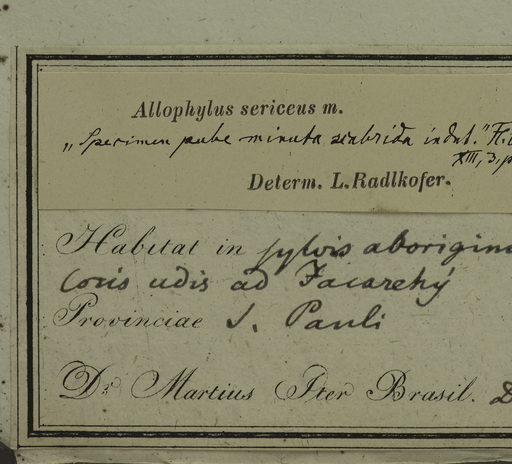 Allophylus sericeus m.
„Specimen pube minuta scabrida indut." Fl.
XIII, 3, p
Determ. L. Radlkofer.
Habitat in sylvis aborigin
locis udis ad Jacarehÿ
Provinciae S. Pauli
Dr. Martius Iter Brasil. D